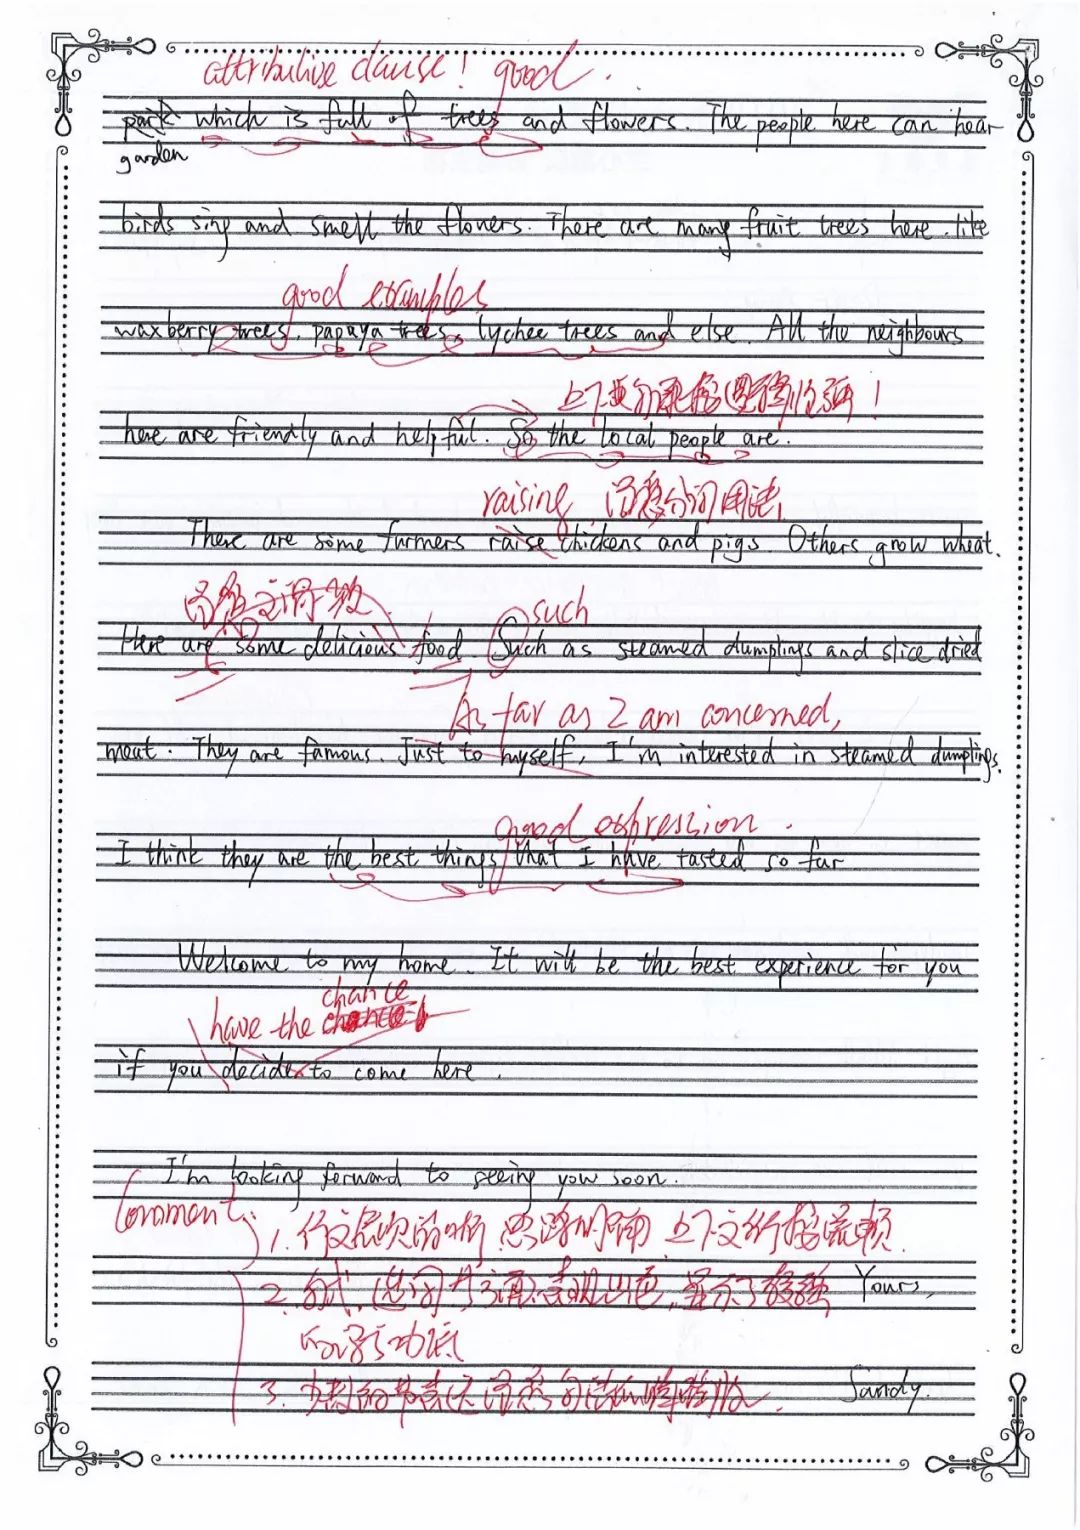 attributive clause! good.
park which is full of trees and flowers. The people here can hear
garden
birds sing and smell the flowers. There are many fruit trees here. like
good examples
waxberry trees, papaya trees, lychee trees and else. All the neighbours
上下要
here are friendly and helpful. So the local people are.
raising 注意分词用法
There are some farmers raise chickens and pigs. Others grow wheat.
注意主谓一致 such
Here are some delicious food. Such as steamed dumplings and slice dried
As far as I am concerned,
meat. They are famous. Just to myself, I'm interested in steamed dumplings.
good expression.
I think they are the best things that I have tasted so far
Welcome to my home. It will be the best experience for you
chance
have the
if you decide to come here.
I'm looking forward to seeing you soon.
Comment:
1. 行文层次清晰 思路明确 上下文衔接流畅.
2. 句式, 选词 表现出色, 显示了 Yours,
3. 注意句 Sandy.